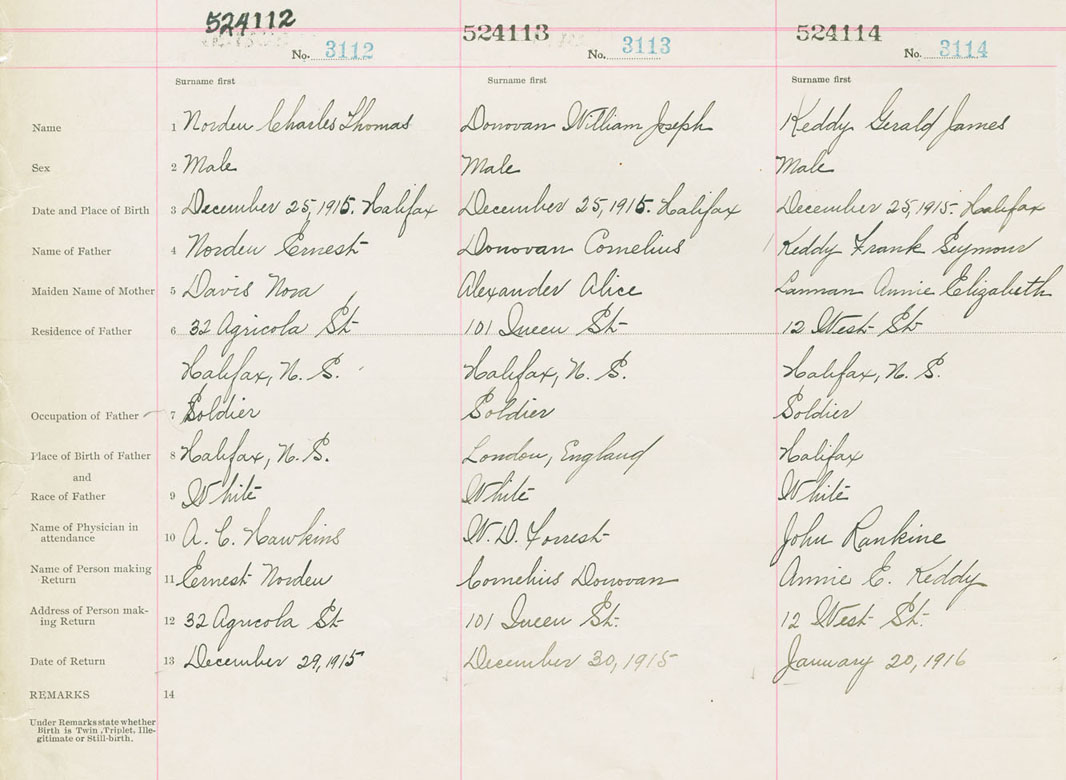 524112 524113 524114
No. 3112 No. 3113 No. 3114
Surname first Surname first Surname first
Name 1 Norden Charles Thomas Donovan William Joseph Keddy Gerald James
Sex 2 Male Male Male
Date and Place of Birth 3 December 25, 1915. Halifax December 25, 1915. Halifax December 25, 1915. Halifax
Name of Father 4 Norden Ernest Donovan Cornelius Keddy Frank Seymour
Maiden Name of Mother 5 Davis Nora Alexander Alice Lannan Annie Elizabeth
Residence of Father 6 32 Agricola St 101 Queen St 12 West St
Halifax, N. S. Halifax, N. S. Halifax, N. S.
Occupation of Father 7 Soldier Soldier Soldier
Place of Birth of Father 8 Halifax, N. S. London, England Halifax
and
Race of Father 9 White White White
Name of Physician in
attendance 10 A. C. Hawkins W. D. Forrest John Rankine
Name of Person making
Return 11 Ernest Norden Cornelius Donovan Annie E. Keddy
Address of Person mak-
ing Return 12 32 Agricola St 101 Queen St. 12 West St.
Date of Return 13 December 29, 1915 December 30, 1915 January 20, 1916
REMARKS 14
Under Remarks state whether
Birth is Twin, Triplet, Ille-
gitimate or Still-birth.